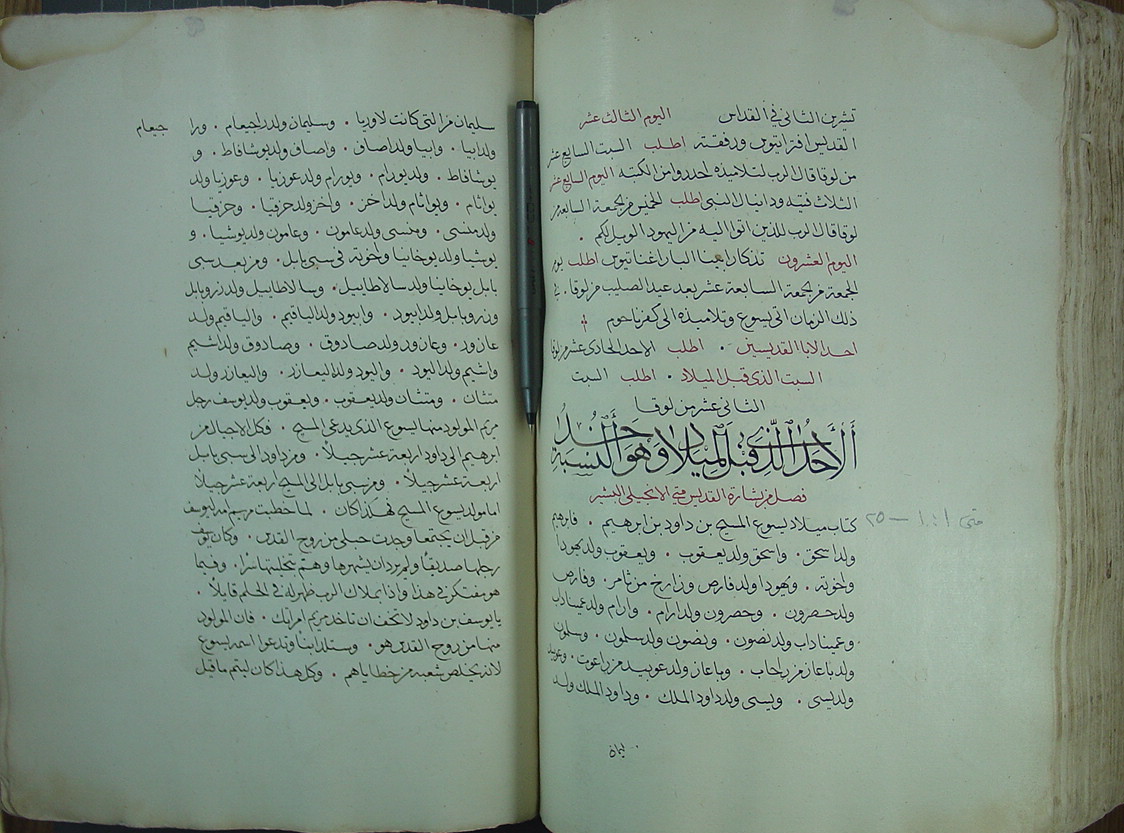 تشرين الثاني في القداس اليوم الثالث عشر
القديس افتراتيوس ورفقته اطلب السبت السابع عشر
من لوقا قال الرب لتلاميذه احدروا من الكتبه اليوم السابع عشر
الثلاث فتيه ودانيال النبي اطلب الخميس من الجمعة السابعة
لوقا قال الرب للذين اتوا اليه من اليهود الويل لكم .
اليوم العشرون تذكار ابينا البار اغناتيوس اطلب يوم
الجمعة من الجمعة السابعة عشر بعد عيد الصليب من لوقا . في
ذلك الزمان اتى يسوع وتلاميذه الى كفرناحوم
احد الابا القديسين . اطلب الاحد الحادي عشر من لوقا
السبت الذي قبل الميلاد . اطلب السبت
الثاني عشر من لوقا
الأحد الذي قبل الميلاد وهو أحد النسبة
فصل من بشارة القديس متي الانجيلي البشير
كتاب ميلاد يسوع المسيح بن داود بن ابرهيم . فابرهيم
متى ١ : ١ — ٢٥
ولد اسحق . واسحق ولد يعقوب . ويعقوب ولد يهودا
واخوته . ويهودا ولد فارص وزارخ من ثامر . وفارص
ولد حصرون . وحصرون ولد ارام . وارام ولد عميناداب
وعميناداب ولد نصون . ونصون ولد سلمون . وسلمون
ولد باعاز من راحاب . وباعاز ولد عوبيد من راعوت . وعوبيد
ولد يسى . ويسى ولد داود الملك . وداود الملك ولد
سليمان من التي كانت لاوريا . وسليمان ولد راجيعام . ورا جيعام
ولد ابيا . وابيا ولد اصاف . واصاف ولد يوشافاط . و
يوشافاط . ولد يورام . ويورام ولد عوزيا . وعوزيا ولد
يواثام . ويواثام ولد اخز . واخز ولد حزقيا . وحزقيا
ولد منسى . ومنسى ولد عامون . وعامون ولد يوشيا . و
يوشيا ولد يوخانيا واخوته في سبي بابل . ومن بعد سبى
بابل يوخانيا ولد سالاطاييل . وسالاطاييل ولد زروبابل
وزروبابل ولد ابيود . وابيود ولد الياقيم . والياقيم ولد
عازور . وعازور ولد صادوق . وصادوق ولد اشيم
واشيم ولد اليود . واليود ولد اليعازر . واليعازر ولد
متثان . ومتثان ولد يعقوب . ويعقوب ولد يوسف رجل
مريم المولود منها يسوع الذي يدعى المسيح . فكل الاجيال من
ابرهيم الى داود اربعة عشر جيلاً . ومن داود الى سبي بابل
اربعة عشر جيلاً . ومن سبي بابل الى المسيح اربعة عشر جيلاً
اما مولد يسوع المسيح فهكذا كان . لما خطبت مريم امه ليوسف
من قبل ان يجتمعا وجدت حبلى من روح القدس . وكان يوسف
رجلها صديقاً ولم يرد ان يشهرها وهم بتخليتها سراً . وفيما
هو مفتكر في هذا واذا بملاك الرب ظهر له في الحلم قايلاً .
يا يوسف بن داود لا تخف ان تاخد مريم امراتك . فان المولود
منها من روح القدس هو . وستلد ابنا وتدعوا اسمه يسوع
لانه يخلص شعبه من خطاياهم . وكل هذا كان ليتم ما قيل